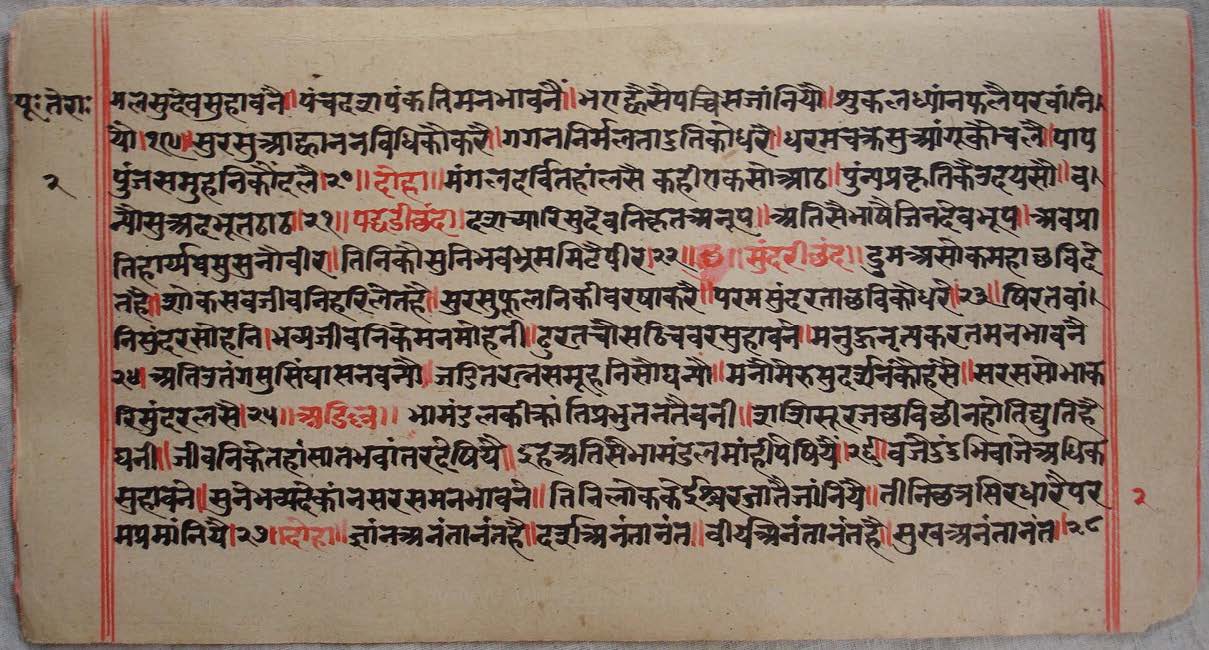 पूः तेराः
मलसुदेवसुहावनै॥पंचदशपंकतिमनभावनै॥भएद्वैसैपच्चिसजांनियौ॥शुकलध्यांनफलैपरवांनि।
यौ।१९॥सुरसुआह्वाननविधिकौकरै॥गगननिर्मलताऽतिकौधरै॥धरमचक्रसुआंगूकौचलै॥पाप
२
पुंजसमुहनिकौंदलै।२०॥दोहा॥मंगलदर्वितहांलसै कहीएकसोआठ॥पुंन्यप्रकृतिकैउदयसौ॥व।
न्यौसुअदभूतठाठ॥२१॥पद्धडीछंद॥दशच्यारिसुदेवनिकृतअनूप॥अतिसैभाषैजिनदेवभूप॥अवप्रा
तिहार्य्यवसुसुनौवीर॥तिनिकौसुनिभवभ्रममिटैपीर।२२॥सुंदरीछंद॥द्रुमअसोकमहाछविदे
तहै॥शोकसवजीवनिहरिलेतहै॥सुरसुफूलनिकीवरषाकरै॥परमसुंदरताछविकौधरै॥२३॥षिरतवां।
निसुंदरसोहनि।भव्यजीवनिकेमनमोहनी॥ढुरतचौसठिचवरसुहावने।मनुहुनृत्यकरतमनभावनै
२४॥अतिउतंगसुसिंघासनवन्यौ॥जडितरत्नसमूहनिसौघन्यौ॥मनौमेरुसुदर्शनकौहंसै॥सरससोभाक
रिसुंदरलसै॥२५॥अडिल्ल॥भामंडलकीक्रांतिप्रभुतनतैवनी॥शशिसूरजछविछीनहोतिद्युतिहै
घनी॥जीवनिकेतहांसातभवांतरदेषियै॥इहअतिसैभामंडलमांहीपेषियै॥२६॥वजैदुंदुंभिवाजेअधिक
सुहावने॥सुनेभव्यदेकांनसरसमनभावने॥तिनिलोककेईश्वरजातैजांनियै॥तीनिछत्रसिरधारैपर
२
मप्रमांनियै।२७॥दोहा॥ज्ञांनअनंतानंतहै॥दर्शअनंतानंत॥वीर्यअनंतानंतहै॥सुखअनंतानंत॥२८